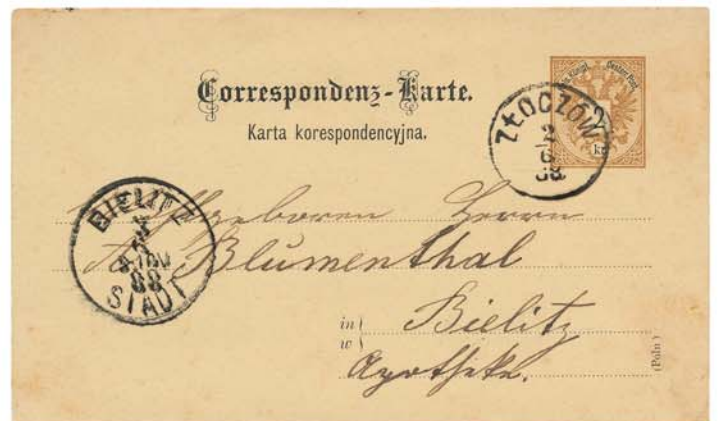 Correspondenz-Karte.
Karta korespondencyjna.
ZŁOCZÓW
2
6
88
2
kr
BIELITZ
3
6
88
STADT
Herrn
Blumenthal
in
w
Bielitz
Apotheke.
(Poln)